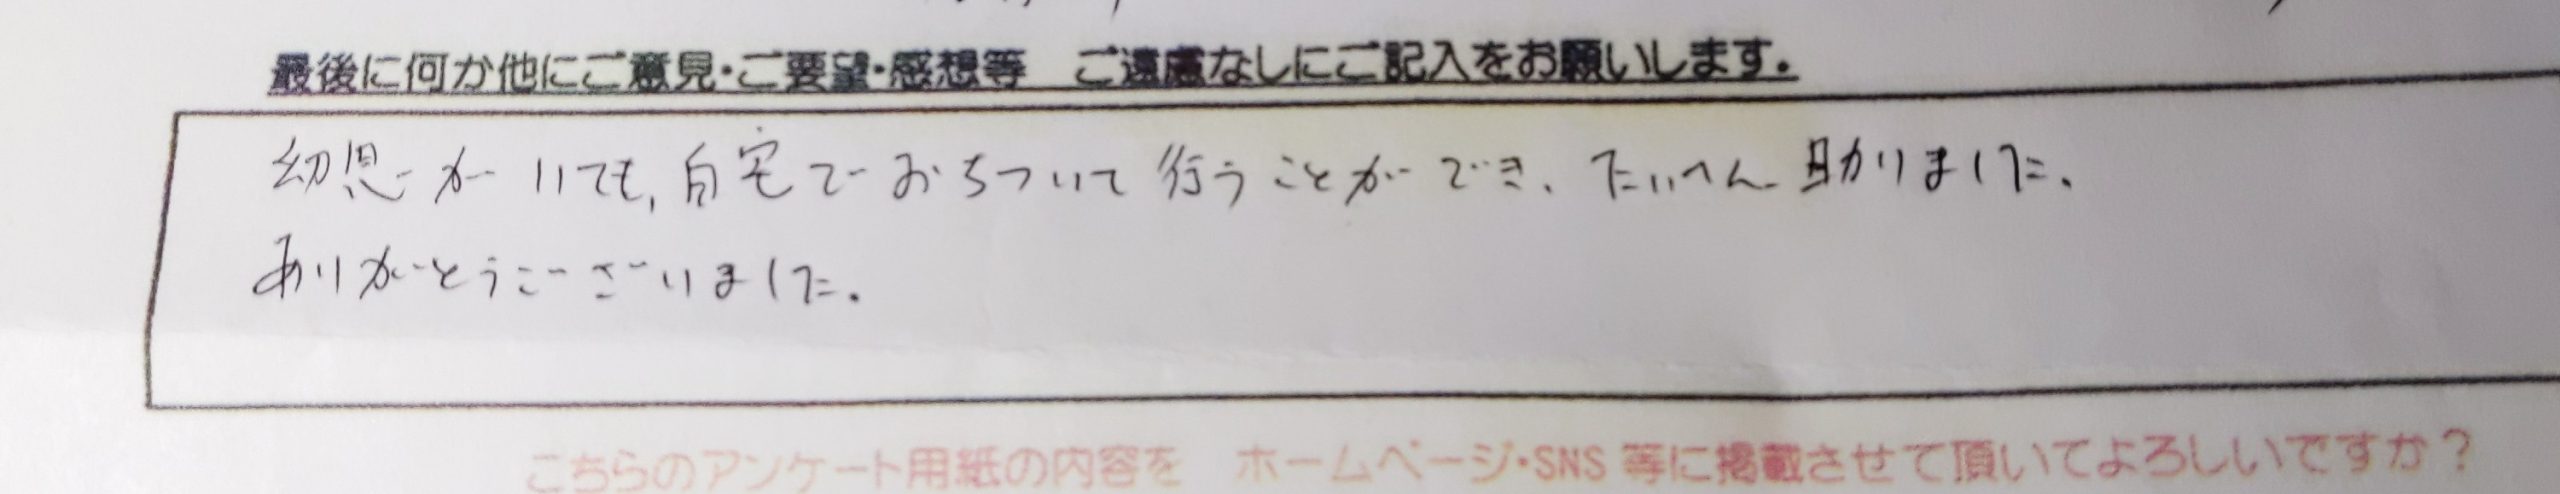 最後に何か他にご意見・ご要望・感想等　ご遠慮なしにご記入をお願いします。
幼児がいても、自宅でおちついて行うことができ、たいへん助かりました。
ありがとうございました。
こちらのアンケート用紙の内容を　ホームページ・SNS 等に掲載させて頂いてよろしいですか？